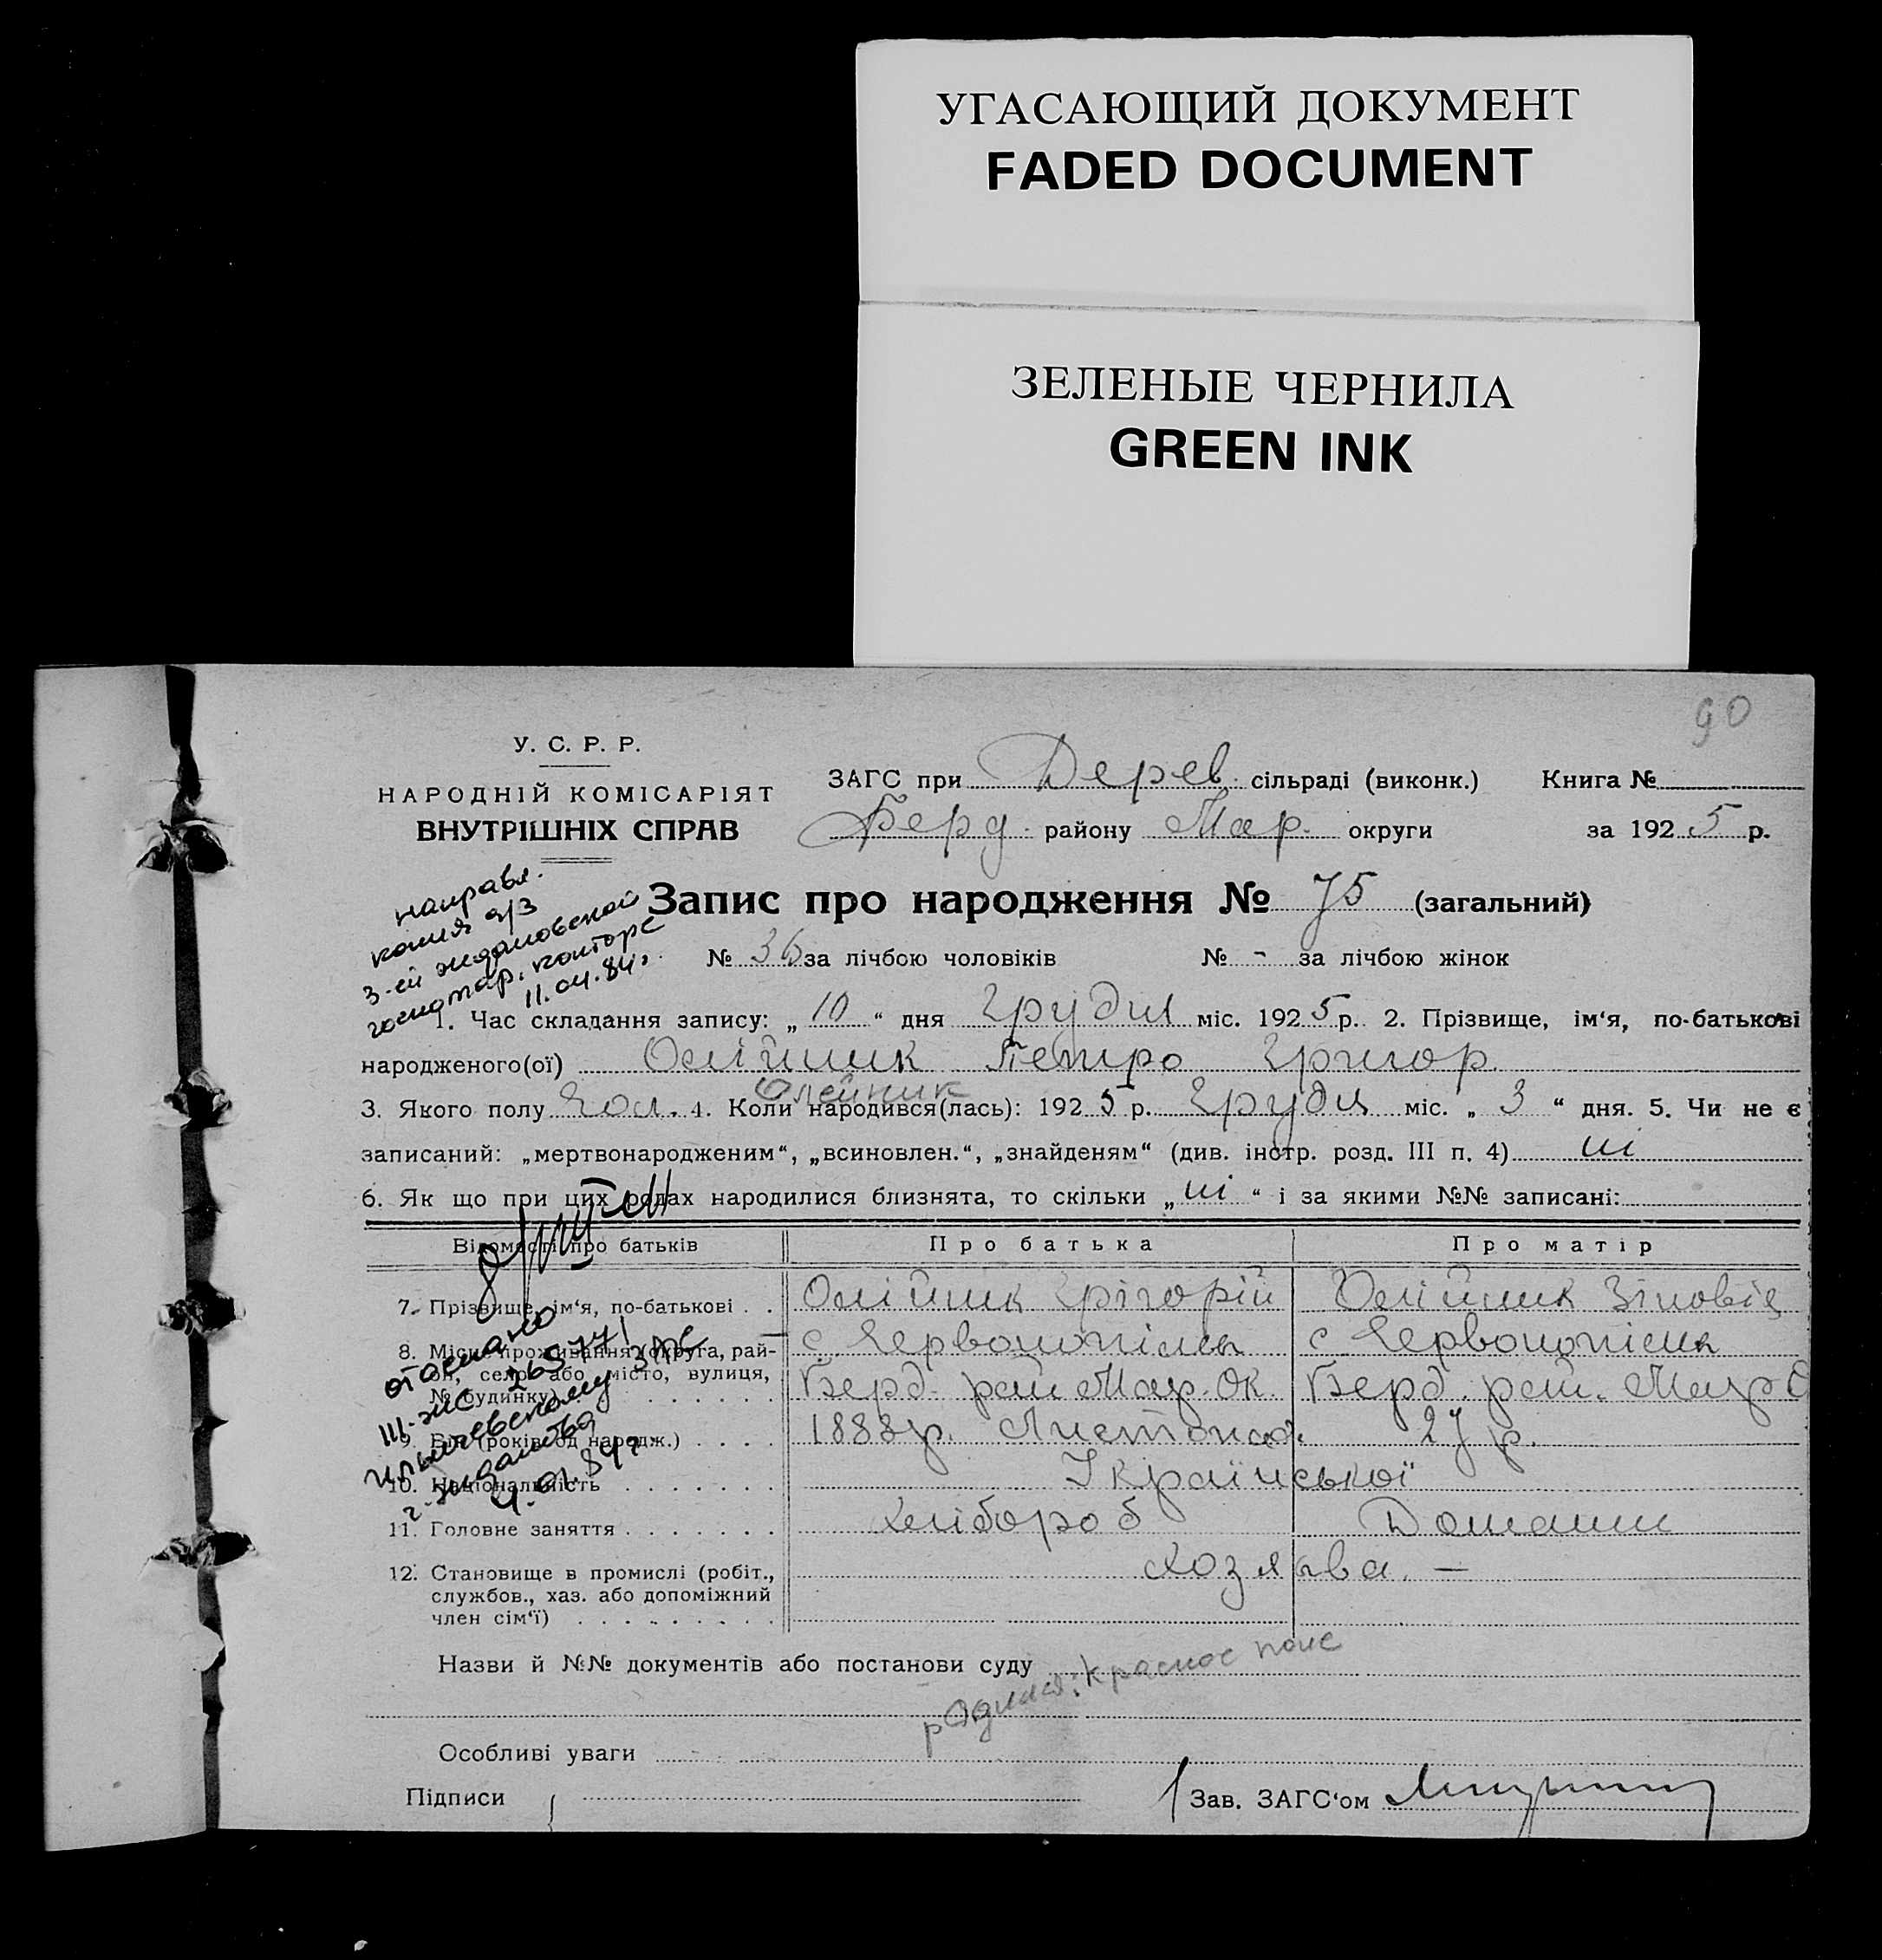 УГАСАЮЩИЙ ДОКУМЕНТ
FADED DOCUMENT
ЗЕЛЕНЫЕ ЧЕРНИЛА
GREEN INK
90
У. С. Р. Р.
НАРОДНІЙ КОМІСАРІЯТ
ВНУТРІШНІХ СПРАВ
ЗАГС при Дерев. сільраді (виконк.) Книга №
Берд. району Мар. округи за 1925 р.
направл.
копия а/з
3-ей ждановской
госнотар. конторе
11.04.84г.
Запис про народження № 75 (загальний)
№ 36 за лічбою чоловіків № - за лічбою жінок
1. Час складання запису: „ 10 “ дня Грудня міс. 1925 р. 2. Прізвище, ім‘я, по-батькові
народженого(ої) Олійник Петро Григор.
Олейник
3. Якого полу Чол. 4. Коли народився(лась): 1925 р. Грудн міс. „ 3 “ дня. 5. Чи не є
записаний: „мертвонародженим“, „всиновлен.“, „знайденям“ (див. інстр. розд. III п. 4) ні
6. Як що при цих родах народилися близнята, то скільки „ ні “ і за якими №№ записані:
Відомості про батьків Про батька Про матір
7. Прізвище, ім‘я, по-батькові . . Олійник Грігорій Олійник Зіновія
8. Місце проживання (округа, рай- с Червонопілля с Червонопілля
он, село або місто, вулиця,
№ будинку) Берд. рай Мар. Ок. Берд. рай. Мар О
9. Вік (років од народж.) . . . . 1888 р. Листопад. 27 р.
10. Національність . . . . . . . Української
11. Головне заняття . . . . . . . Хлібороб Домашн
12. Становище в промислі (робіт., Хозяйва. —
службов., хаз. або допоміжний
член сім‘ї) . . . . . . . . .
отослано
III-ЖС 265771
Ильичевскому ЗАГС
г. Жданова
4.01.84г.
Назви й №№ документів або постанови суду
родился: Красное поле
Особливі уваги
Підписи { Зав. ЗАГС‘ом